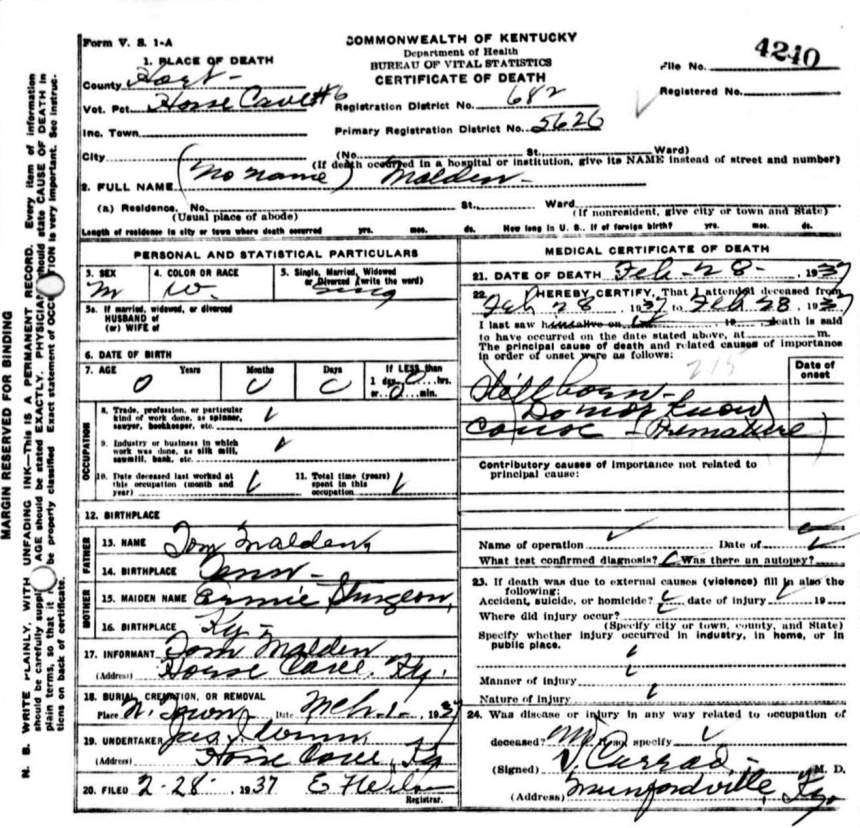 Form V. S. 1-A
COMMONWEALTH OF KENTUCKY
Department of Health
BUREAU OF VITAL STATISTICS
CERTIFICATE OF DEATH
File No. 4240
Registered No.
1. PLACE OF DEATH
County Hart
Vot. Pct. Horse Cave #6
Registration District No. 682
Inc. Town
Primary Registration District No. 5626
City (No. St. Ward)
(If death occurred in a hospital or institution, give its NAME instead of street and number)
2. FULL NAME (no name) Malden
(a) Residence. No. St., Ward
(Usual place of abode) (If nonresident, give city or town and State)
Length of residence in city or town where death occurred yrs. mos. ds. How long in U. S., if of foreign birth? yrs. mos. ds.
PERSONAL AND STATISTICAL PARTICULARS
3. SEX m
4. COLOR OR RACE W.
5. Single, Married, Widowed
or Divorced (write the word)
Sing
5a. If married, widowed, or divorced
HUSBAND of
(or) WIFE of
6. DATE OF BIRTH
7. AGE 0 Years Months 0 Days
If LESS than
1 day 0 hrs.
or 0 min.
OCCUPATION
8. Trade, profession, or particular
kind of work done, as spinner,
sawyer, bookkeeper, etc.
9. Industry or business in which
work was done, as silk mill,
sawmill, bank, etc.
10. Date deceased last worked at
this occupation (month and
year)
11. Total time (years)
spent in this
occupation
12. BIRTHPLACE
FATHER
13. NAME Tom Malden
14. BIRTHPLACE Tenn
MOTHER
15. MAIDEN NAME Ermie Sturgeon
16. BIRTHPLACE Ky
17. INFORMANT Tom Malden
(Address) Horse Cave, Ky.
18. BURIAL, CREMATION, OR REMOVAL
Place Date Mch 1 - 1937
19. UNDERTAKER
(Address) Horse Cave, Ky
20. FILED 2-28- 1937 E
Registrar.
MEDICAL CERTIFICATE OF DEATH
21. DATE OF DEATH Feb - 28 - , 1937
22. I HEREBY CERTIFY, That I attended deceased from
Feb 28, 1937 to Feb 28, 1937
I last saw h alive on 19 death is said
to have occurred on the date stated above, at m.
The principal cause of death and related causes of importance
in order of onset were as follows:
Date of
onset
Stillborn -
Do not Know
Cause - (Premature)
Contributory causes of importance not related to
principal cause:
Name of operation Date of
What test confirmed diagnosis? Was there an autopsy?
23. If death was due to external causes (violence) fill in also the
following:
Accident, suicide, or homicide? date of injury 19
Where did injury occur?
(Specify city or town, county, and State)
Specify whether injury occurred in industry, in home, or in
public place.
Manner of injury
Nature of injury
24. Was disease or injury in any way related to occupation of
deceased? No If so, specify
(Signed) M. D.
(Address) Munfordville, Ky.
MARGIN RESERVED FOR BINDING
N. B. WRITE PLAINLY, WITH UNFADING INK—THIS IS A PERMANENT RECORD. Every item of information
should be carefully AGE should be stated EXACTLY. PHYSICIAN should state CAUSE OF DEATH in
plain terms, so that it be properly classified. Exact statement of is very important. See instruc-
tions on back of certificate.